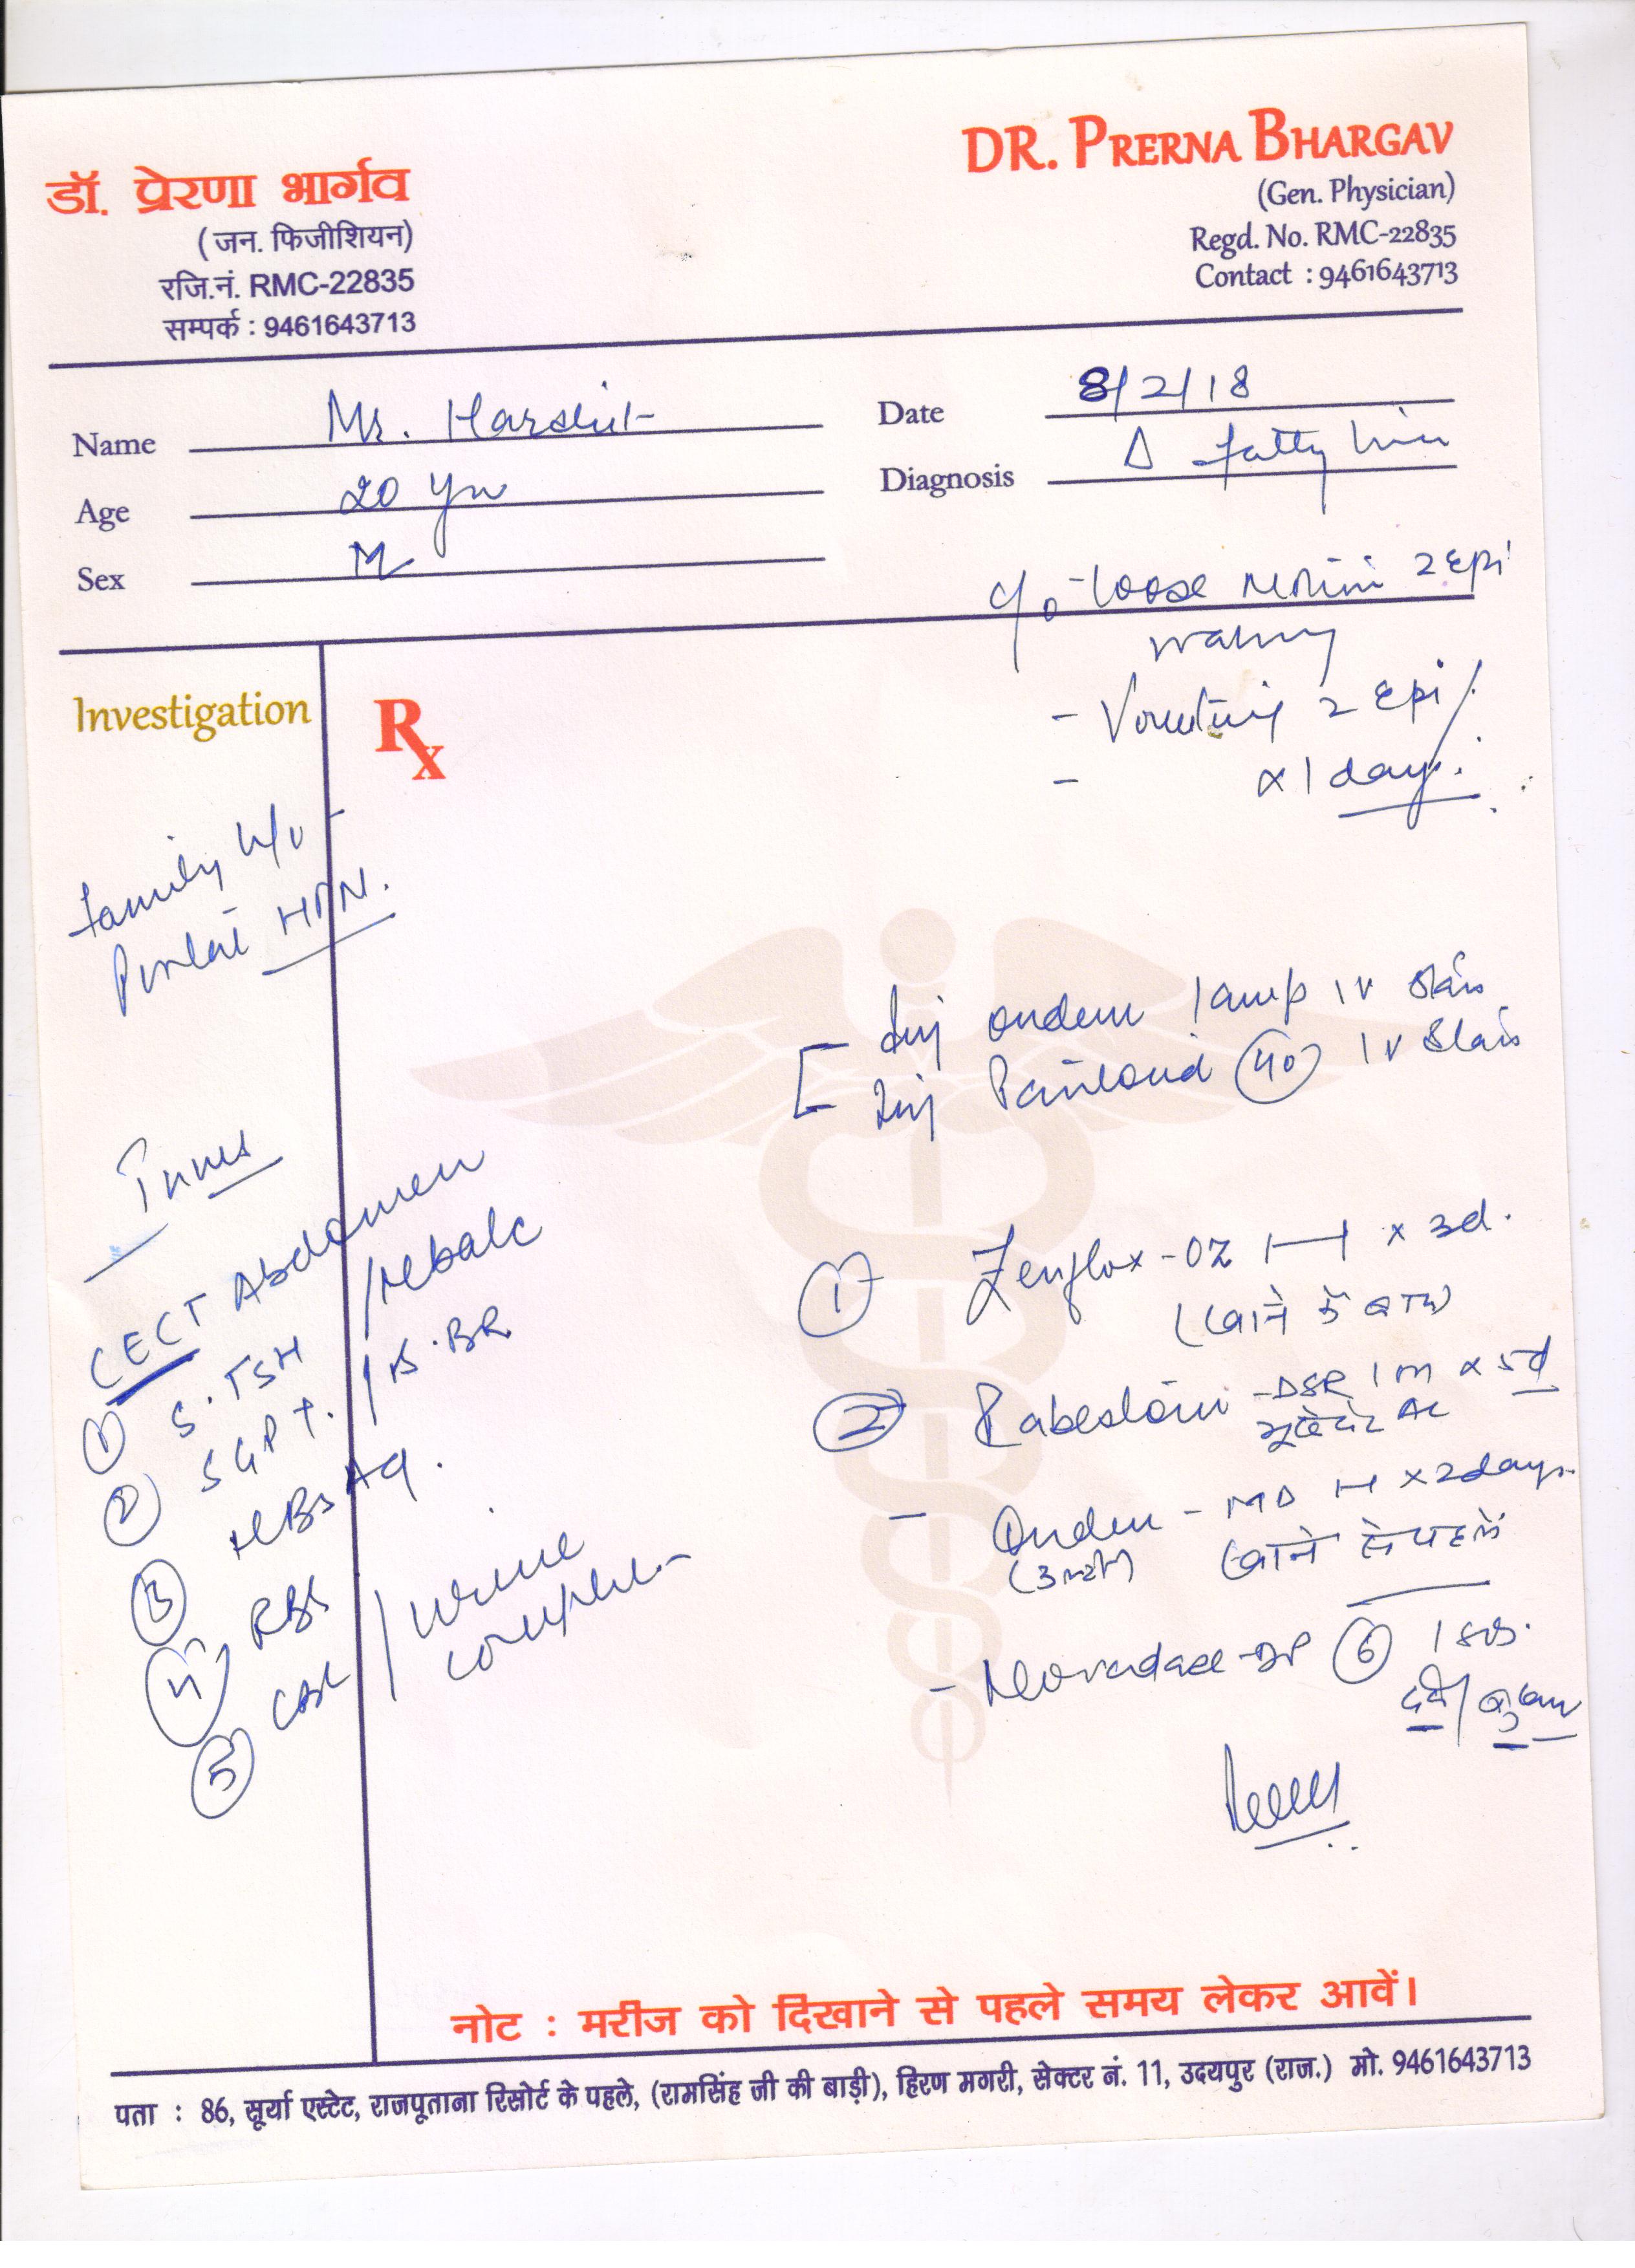 डॉ. प्रेरणा भार्गव
(जन. फिजीशियन)
रजि.नं. RMC-22835
सम्पर्क : 9461643713
DR. PRERNA BHARGAV
(Gen. Physician)
Regd. No. RMC-22835
Contact : 9461643713
Name Mr. Harshit
Age 20 yrs
Sex M
Date 8/2/18
Diagnosis Δ fatty liver
c/o - loose motion 2 epi
- Vomiting 2 epi
- x 1 day.
Investigation
Rx
family h/o
Portal HPN.
Inj ondem 1 amp IV stat
Inj Pantocid 40 IV stat
CECT Abdomen
① S. TSH
② SGPT. / S. BR
③ HBsAg.
④ RBS
⑤ CBC / urine complete
① Zenflox-OZ x 3d.
(खाने के बाद)
② -DSR 1 m x 5d
भूखे पेट AC
- Ondem - MD x 2 days.
(उल्टी) खाने से पहले
- -SP ⑥ 1 SOS.
दर्द / बुखार
नोट : मरीज को दिखाने से पहले समय लेकर आवें।
पता : 86, सूर्या एस्टेट, राजपूताना रिसोर्ट के पहले, (रामसिंह जी की बाड़ी), हिरण मगरी, सेक्टर नं. 11, उदयपुर (राज.) मो. 9461643713